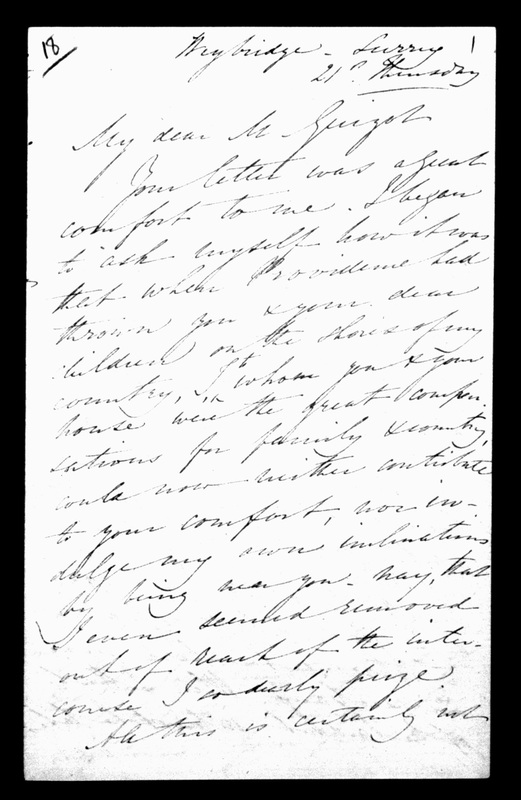 18
1
Weybridge - Surrey
21st Thursday
My dear M Guizot
Your letter was a great
comfort to me. I began
to ask myself how it was
that when Providence had
thrown you & your dear
children on the shores of my
country, I to whom you & your
house were the great compen-
sations for family & country,
could now neither contribute
to your comfort, nor in-
dulge my own inclinations
by being near you - nay, that
I even seemed removed
out of reach of the inter-
course I so dearly prize.
All this is certainly not